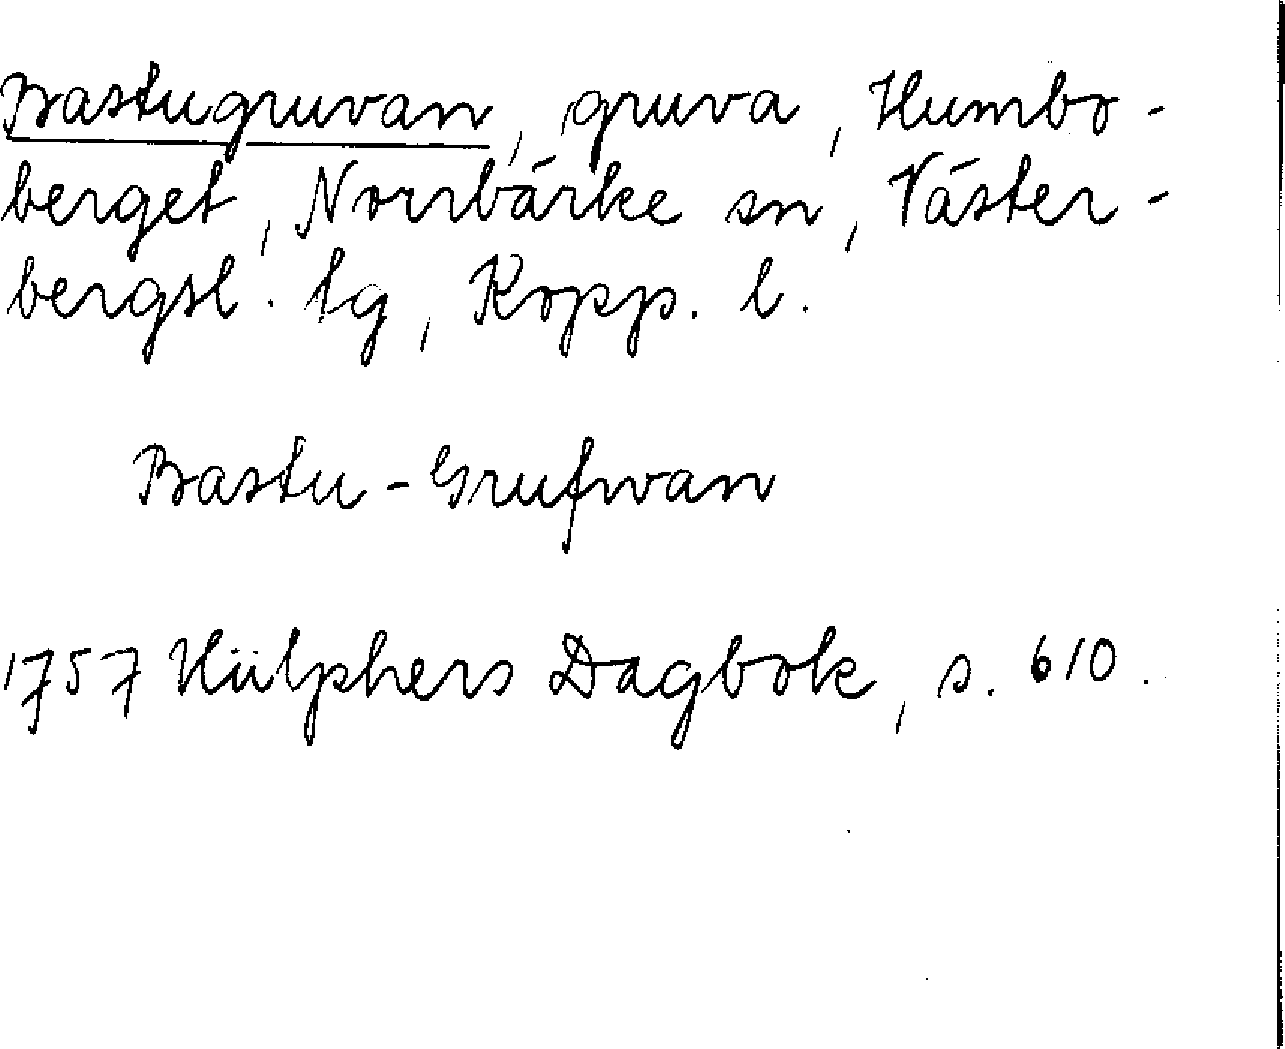 Bastugruvan, gruva, Humbo-
berget, Norrbärke sn, Väster-
bergsl. tg, Kopp. l.
Bastu-Grufwan
1757 Hülphers Dagbok, s. 610.